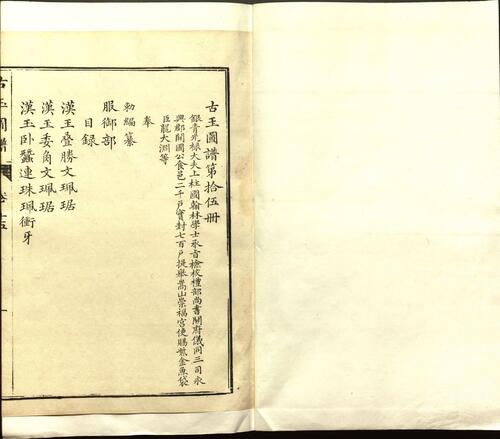 古玉圖譜第拾伍冊
銀青光祿大夫上柱國翰林學士承旨檢校禮部尚書開府儀同三司永
興郡開國公食邑二千戶實封七百戶提舉嵩山崇福宮使賜紫金魚袋
臣龍大淵等
奉
勅編纂
服御部
目録
漢玉疊勝文珮琚
漢玉委角文珮琚
漢玉卧蠶連珠珮衝牙
古玉圖譜
卷十五
一